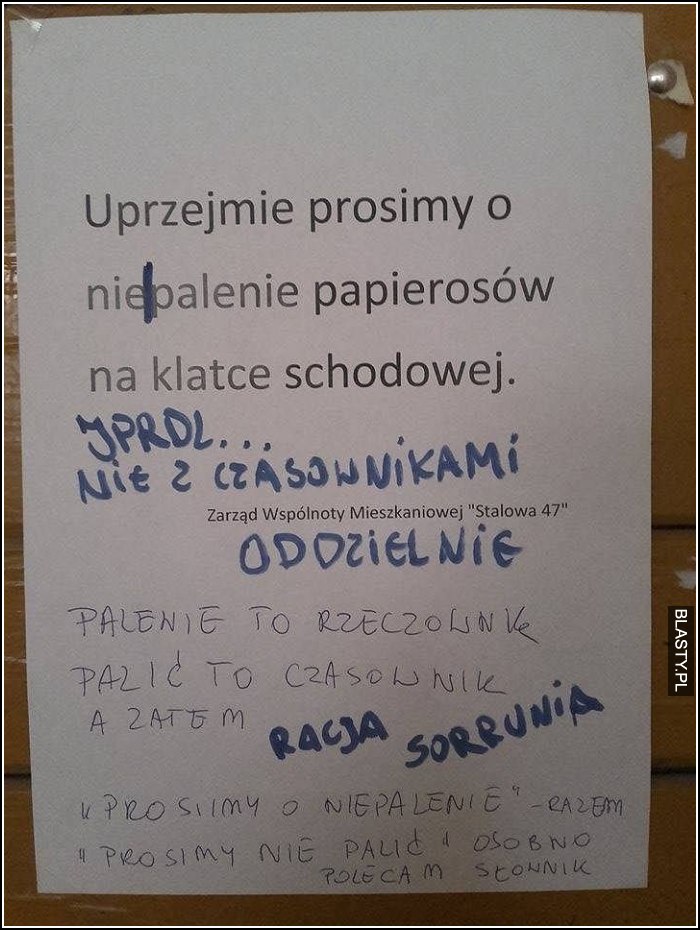 Uprzejmie prosimy o
nie|palenie papierosów
na klatce schodowej.
JPRDL...
NIE Z CZASOWNIKAMI
Zarząd Wspólnoty Mieszkaniowej "Stalowa 47"
ODDZIELNIE
PALENIE TO RZECZOWNIK
PALIĆ TO CZASOWNIK
A ZATEM
RACJA SORRUNIA
"PROSIMY O NIEPALENIE" - RAZEM
"PROSIMY NIE PALIĆ" OSOBNO
POLECAM SŁOWNIK
BLASTY.PL